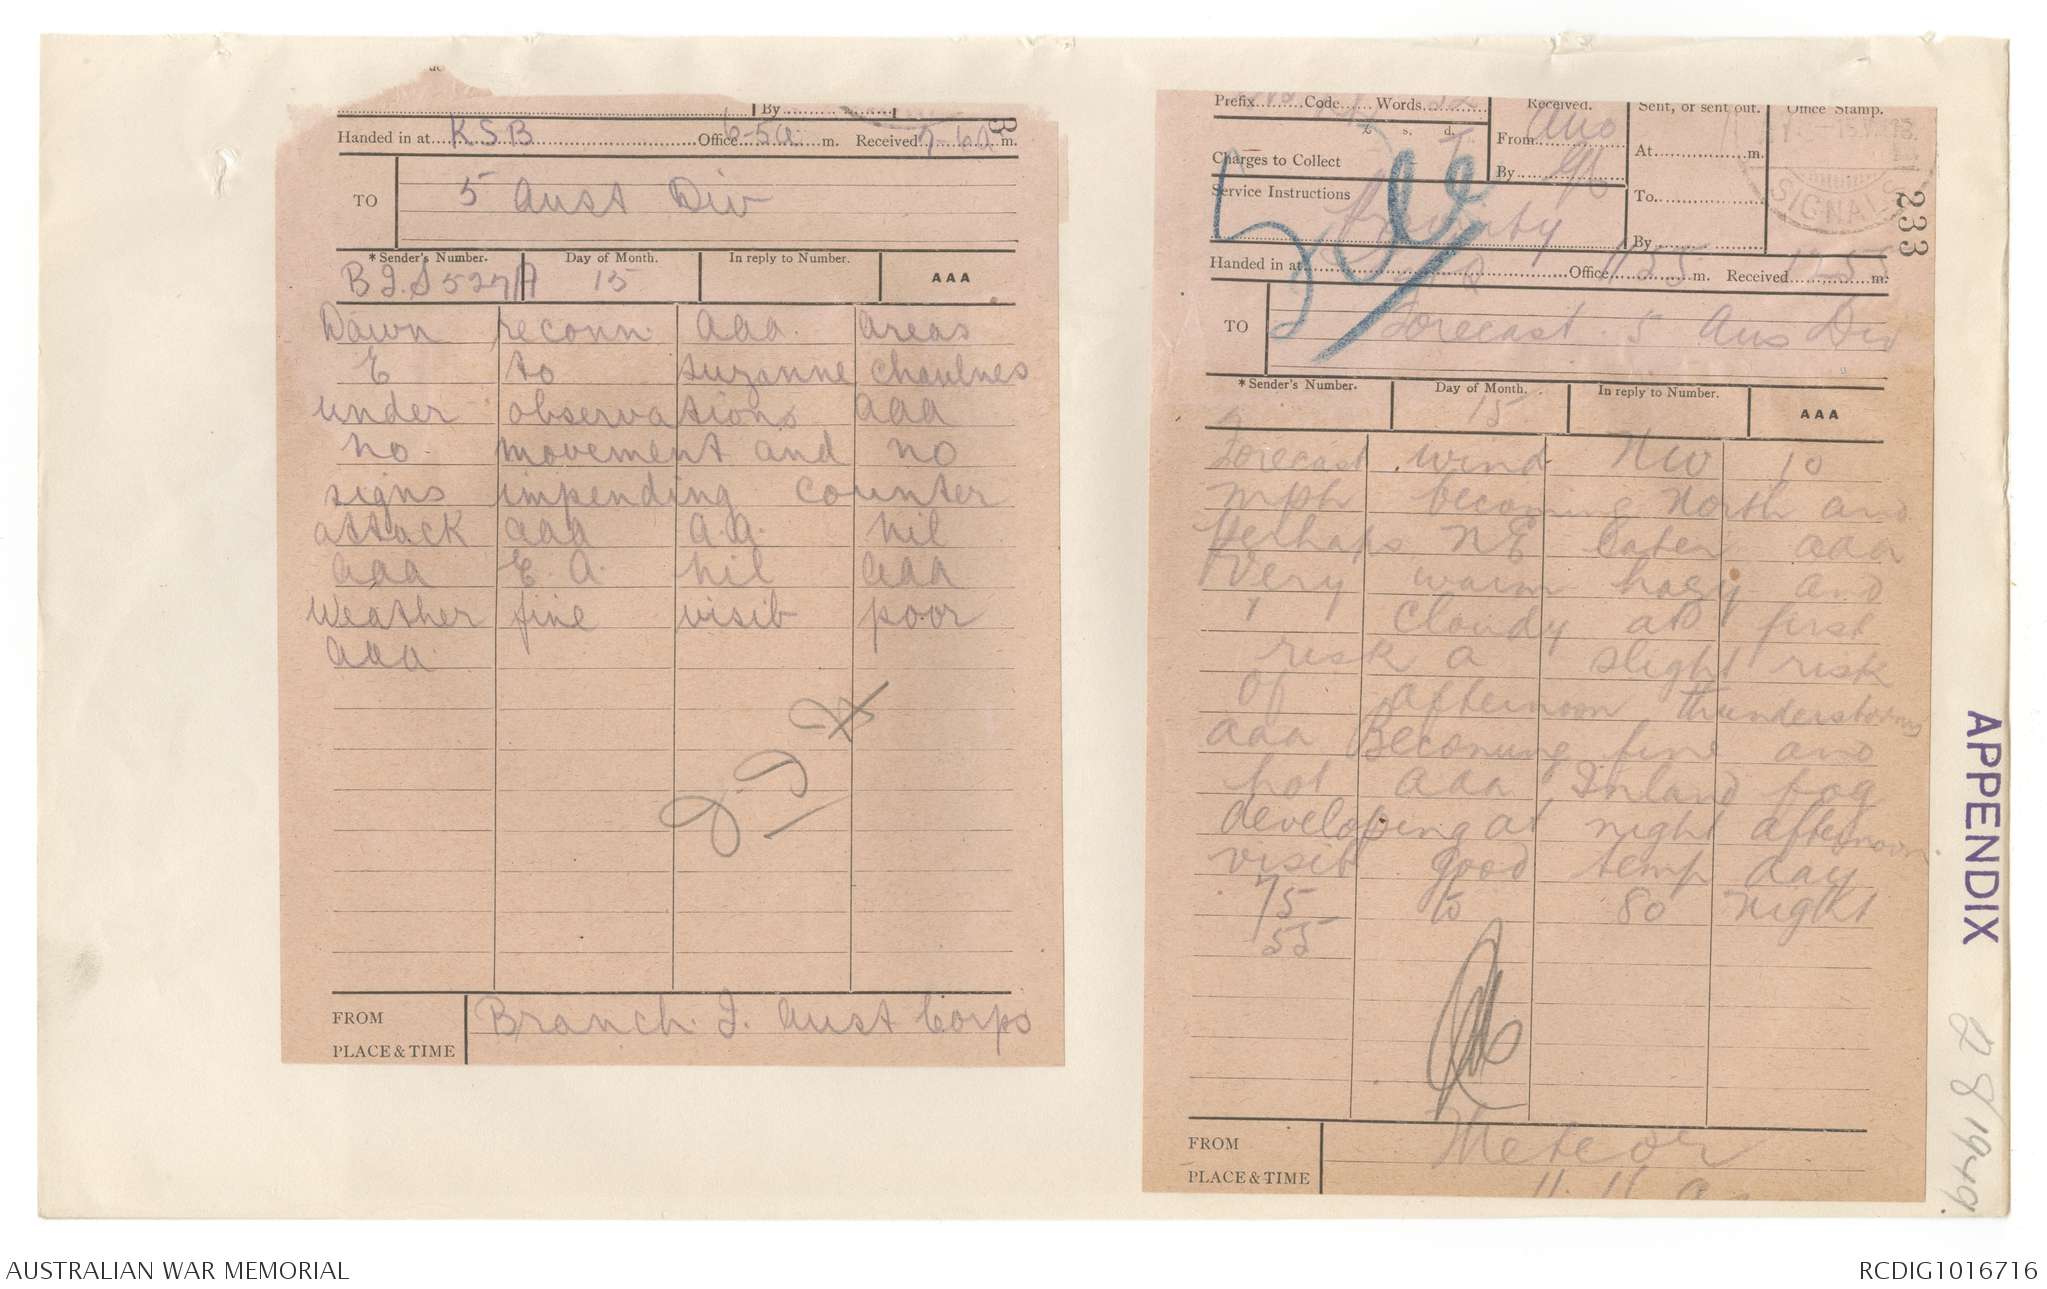 By
Handed in at K.S.B Office 6-5a m. Received 7-6a m.
TO 5 Aust Div
*Sender's Number. Day of Month. In reply to Number. AAA
B.I.S527A 15
Dawn reconn. aaa. areas
E to suzanne chaulnes
under observations aaa
no movement and no
signs impending counter
attack aaa A.A. nil
aaa E.A. nil aaa
Weather fine visib poor
aaa.
FROM Branch. I. Aust Corps
PLACE & TIME
Prefix Code Words Received. Sent, or sent out. Office Stamp.
£ s. d. From At m.
Charges to Collect By
SIGNALS
Service Instructions To
Priority By
233
Handed in at Office 1125 m. Received 1255 m.
TO Forecast. 5 Aus Div
*Sender's Number. Day of Month. In reply to Number. AAA
15
Forecast wind NW 10
mph becoming North and
Perhaps NE later aaa
Very warm hazy and
cloudy at first
risk a slight risk
of afternoon thunderstorms
aaa Becoming fine and
hot aaa Inland fog
developing at night afternoon
visib good temp day
75 to 80 Night
55
FROM Meteor
PLACE & TIME
APPENDIX
AUSTRALIAN WAR MEMORIAL
RCDIG1016716